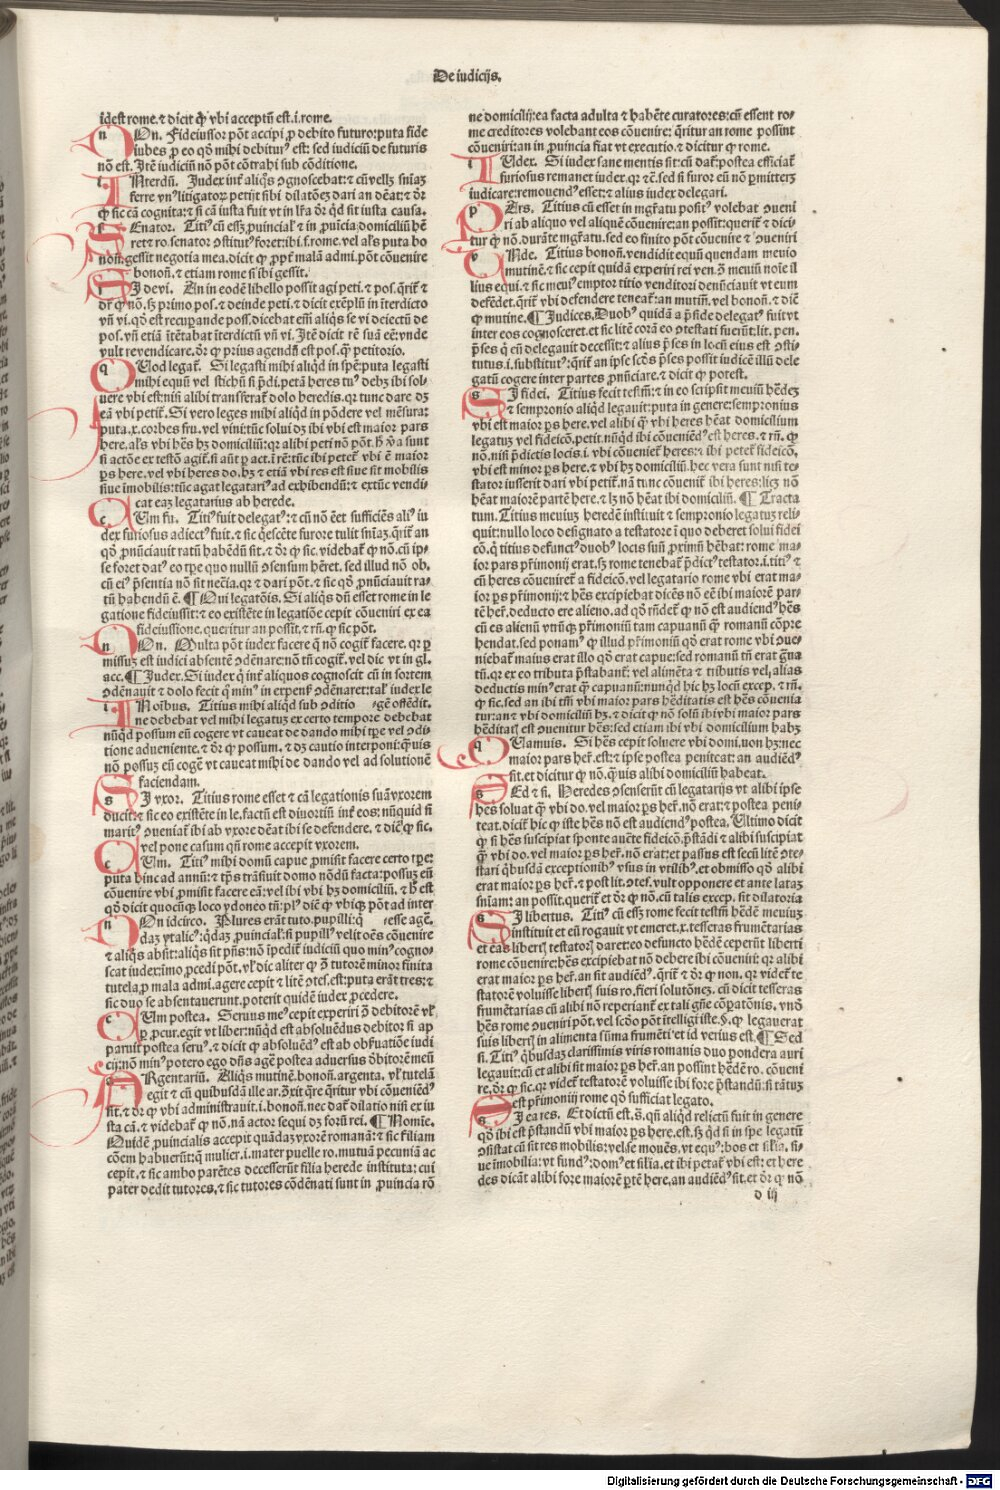 De iudicijs.
idest rome. ⁊ dicit ꝙ vbi acceptū est .i. rome.
nOn. Fideiussor pōt accipi ꝓ debito futuro: puta fide
iubes ꝓ eo qđ mihi debitur⁹ est: sed iudiciū de futuris
nō est. Itē iudiciū nō pōt cōtrahi sub cōditione.
iNterdū. Judex int̄ aliq̄s ꝯgnoscebat: ⁊ cū vellꝫ sniaꝫ
ferre vn⁹ litigatoꝝ petijt sibi dilatōeꝫ dari an dēat: ⁊ dr̄
ꝙ sic cā cognita: ⁊ si cā iusta fuit vt in lr̄a dr̄ qđ sit iusta causa.
sEnator. Titi⁹ cū essꝫ ꝓuincial⁹ ⁊ in ꝓuīcia domiciliū hē
ret ⁊ ro. senator ꝯstitut⁹ foret: ibi .s. rome. vel al's puta bo
noñ. gessit negotia mea. dicit ꝙ ꝓpt̄ malā admi. pōt cōuenire
bonoñ. ⁊ etiam rome si ibi gessit.
sI de vi. An in eodē libello possit agi peti. ⁊ pos. q̄rit̄ ⁊
dr̄ ꝙ nō. sꝫ primo pos. ⁊ deinde peti. ⁊ dicit exēplū in īterdicto
vn̄ vi. qđ est recuꝑande poss. dicebat em̄ aliq̄s se vi deiectū de
pos. vn̄ etiā ītētabat īterdictū vn̄ vi. Itē dicit rē suā eē: vnde
vult revendicare. dr̄ ꝙ prius agendū est pos. q̄ petitorio.
qUod legat̄. Si legasti mihi aliqđ in spē: puta legasti
mihi equū vel stichū si p̄di. petā heres tu⁹ debꝫ ibi sol⸗
uere vbi est: nisi alibi transferat̄ dolo heredis. qꝛ tunc dare dꝫ
eā vbi petit̄. Si vero leges mihi aliqđ in pōdere vel mēsura:
puta .x. corbes fru. vel vini: tūc solui dꝫ ibi vbi est maior pars
here. al's vbi hēs hꝫ domiciliū: qꝛ alibi peti nō pōt.
si actōe ex testō agit̄. si aūt ꝑ act. ī rē: tūc ibi petet̄ vbi ē maior
ꝑs here. vel vbi heres do. hꝫ ⁊ etiā vbi res est siue sit mobilis
siue īmobilis: tūc agat legatari⁹ ad exhibendū: ⁊ extūc vendi⸗
cat eaꝫ legatarius ab herede.
cUm fu. Titi⁹ fuit delegat⁹: ⁊ cū nō eēt sufficiēs ali⁹ iu
dex furiosus adiect⁹ fuit. ⁊ sic q̄escēte furore tulit sniaꝫ. q̄rit̄ an
qđ ꝓnūciauit ratū habēdū sit. ⁊ dr̄ ꝙ sic. videbat̄ ꝙ nō. cū ip⸗
se foret dat⁹ eo tꝑe quo nullū ꝯsensum hēret. sed illud nō ob.
cū ei⁹ p̄sentia nō sit necīa. qꝛ ⁊ dari pōt. ⁊ sic qđ ꝓnūciauit ra⸗
tū habendū ē. ¶ Qui legatōis. Si aliq̄s dū esset rome in le
gatione fideiussit: ⁊ eo existēte in legatiōe cepit cōueniri ex ea
fideiussione. queritur an possit. ⁊ rñ. ꝙ sic pōt.
nOn. Multa pōt iudex facere q̄ nō cogit̄ facere. qꝛ ꝑ
missuꝫ est iudici absentē ꝯdēnare: nō tñ cogit̄. vel dic vt in gl.
acc. ¶ Judex. Si iudex q̄ int̄ aliquos cognoscit cū in sortem
ꝯdēnauit ⁊ dolo fecit ꝙ min⁹ in expens̄ ꝯdēnaret: tal' iudex le
iNoibus. Titius mihi aliqđ sub ꝯditio
ne debebat vel mihi legatuꝫ ex certo tempore debebat
nūqđ possum eū cogere vt caueat de dando mihi tꝑe vel ꝯdi⸗
tione adueniente. ⁊ dr̄ ꝙ possum. ⁊ dꝫ cautio interponi: q̄uis
nō possuꝫ eū cogē vt caueat mihi de dando vel ad solutionē
faciendam.
sI vxor. Titius rome esset ⁊ cā legationis suā vxorem
ducit: ⁊ sic eo existēte in le. factū est diuortiū int̄ eos: nūquid si
marit⁹ ꝯueniat̄ ibi ab vxore dēat ibi se defendere. ⁊ dic̄ ꝙ sic.
vel pone casum qñ rome accepit vxorem.
cUm. Titi⁹ mihi domū capue ꝓmisit facere certo tꝑe:
puta hinc ad annū: ⁊ tꝑs trāsiuit domo nōdū facta: possuꝫ eū
cōuenire vbi ꝓmisit facere eā: vel ibi vbi hꝫ domiciliū. ⁊ h̄ est
qđ dicit quocūqꝫ loco ydoneo tñ: pl⁹ dic̄ ꝙ vbiqꝫ pōt ad inter
nOn idcirco. Plures erāt tuto. pupilli: q̄ esse agē.
daꝫ ytalic⁹: q̄daꝫ ꝓuincial': si pupill⁹ velit oēs cōuenire
⁊ aliq̄s absit: aliq̄s sit pn̄s: nō īpedit̄ iudiciū quo min⁹ cogno⸗
scat iudex: imo ꝓcedi pōt. vl' dic aliter ꝙ ꝫ tutorē minor finita
tutela. ꝓ mala admi. agere cepit ⁊ litē ꝯtes. est: puta erāt tres: ⁊
sic duo se absentauerunt. poterit quidē iudex ꝓcedere.
cUm postea. Seruus me⁹ cepit experiri ꝫ debitorē vl'
ꝑ ꝓcur. egit vt liber: nūqđ est absoluēdus debitor si ap
paruit postea seru⁹. ⁊ dicit ꝙ absoluēd⁹ est ab obẜuatiōe iudi
cij: nō min⁹ potero ego dn̄s agē postea aduersus d̄bitorē meū
aRgentariū. Aliq̄s mutinē. bonoñ. argenta. vl' tutelā
egit ⁊ cū quibusdā ille ar. ꝯrit̄ q̄re q̄ritur vbi cōueniēd⁹
sit. ⁊ dr̄ ꝙ vbi administrauit .i. bonoñ. nec dat̄ dilatio nisi ex iu
sta cā. ⁊ videbat̄ ꝙ nō. nā actor sequi dꝫ forū rei. ¶ Nomīe.
Quidē ꝓuincialis accepit quādaꝫ vxorē romanā: ⁊ sic filiam
cōem habuerūt: q̄ mulier .i. mater puelle ro. mutuā pecuniā ac
cepit. ⁊ sic ambo parētes decesserūt filia herede instituta: cui
pater dedit tutores. ⁊ sic tutores cōdēnati sunt in ꝓuincia rō
ne domicilij: ea facta adulta ⁊ habēte curatores: cū essent ro⸗
me creditores volebant eos cōuenire: q̄ritur an rome possint
cōueniri: an in ꝓuincia fiat vt executio. ⁊ dicitur ꝙ rome.
iUdex. Si iudex sane mentis sit: cū dat̄: postea efficiat̄
furiosus remanet iudex. qꝛ ⁊c̄. sed si furor eū nō ꝑmitterꝫ
iudicare: remouend⁹ esset: ⁊ alius iudex delegari.
pErs. Titius cū esset in mgr̄atu posit⁹ volebat ꝯueni
ri ab aliquo vel aliquē cōuenire: an possit: querit̄ ⁊ dici⸗
tur ꝙ nō. durāte mgr̄atu. sed eo finito pōt cōuenire ⁊ ꝯueniri
vNde. Titius bonoñ. vendidit equū quendam meuio
mutinē. ⁊ sic cepit quidā experiri rei ven. ꝫ meuiū noīe il
lius equi. ⁊ sic meui⁹ emptor titio venditori denūciauit vt eum
defēdet. q̄rit̄ vbi defendere teneat̄: an mutiñ. vel bonoñ. ⁊ dic̄
ꝙ mutine. ¶ Judices. Duob⁹ quidā a p̄side delegat⁹ fuit vt
inter eos cognosceret. et sic litē corā eo ꝯtestati fuerūt: lit. pen.
p̄ses q̄ eū delegauit decessit: ⁊ alius p̄ses in locū eius est ꝯsti⸗
tutus .i. substitut⁹: q̄rit̄ an ipse scđs p̄ses possit iudicē illū dele
gatū cogere inter partes ꝓnūciare. ⁊ dicit ꝙ potest.
sI fidei. Titius fecit testm̄: ⁊ in eo scripsit meuiū hēdeꝫ
⁊ sempronio aliqđ legauit: puta in genere: sempronius
vbi est maior ꝑs here. vel alibi q̄ vbi heres hēat domicilium
legatuꝫ vel fideicō. petit. nūqđ ibi cōueniēd⁹ est heres. ⁊ rñ. ꝙ
nō. nisi p̄dictis locis .i. vbi cōueniet̄ heres: ⁊ ibi petet̄ fideicō.
vbi est minor ꝑs here. ⁊ vbi hꝫ domiciliū. hec vera sunt nisi te⸗
stator iusserit dari vbi petit̄. nā tunc cōuenit̄ ibi heres: licꝫ nō
hēat maiorē partē here. ⁊ lꝫ nō hēat ibi domiciliū. ¶ Tracta
tum. Titius meuiuꝫ heredē instituit ⁊ sempronio legatuꝫ reli⸗
quit: nullo loco designato a testatore ī quo deberet solui fidei
cō. q̄ titius defunct⁹ duob⁹ locis suū p̄rimū hēbat: rome ma⸗
ior pars pr̄imonij erat. sꝫ rome tenebat̄ p̄dict⁹ testator .i. titi⁹ ⁊
cū heres cōueniret̄ a fideicō. vel legatario rome vbi erat ma⸗
ior ꝑs pr̄imonij: ⁊ hēs excipiebat dicēs nō eē ibi maiorē par⸗
tē het̄. deducto ere alieno. ad qđ rñdet̄ ꝙ nō est audiend⁹ hēs
cū es alienū vtrūqꝫ pr̄imoniū tam capuanū q̄ romanū cōpre
hendat. sed ponam⁹ ꝙ illud pr̄imoniū qđ erat rome vbi ꝯue⸗
niebat̄ maius erat illo qđ erat capue: sed romanū tñ erat
tū. qꝛ ex eo tributa p̄stabant̄: vel alimēta ⁊ tributis vel alias
deductis min⁹ erat q̄ capuanū: nunqđ hic hꝫ locū excep. ⁊ rñ.
ꝙ sic. sed an ibi tm̄ vbi maior pars hēditatis est hēs cōuenia
tur: an ⁊ vbi domiciliū hꝫ. ⁊ dicit ꝙ nō solū ibi vbi maior pars
hēditatis est ꝯuenitur hēs: sed etiam ibi vbi domicilium habꝫ
qUamuis. Si hēs cepit soluere vbi domi. non hꝫ: nec
maior pars het̄. est: ⁊ ipse postea peniteat: an audiēd⁹
sit. et dicitur ꝙ nō. q̄uis alibi domiciliū habeat.
sEd ⁊ si. Heredes ꝯsenserūt cū legatarijs vt alibi ipse
hēs soluat q̄ vbi do. vel maior ꝑs het̄. nō erat: ⁊ postea peni⸗
teat. dicit̄ hic ꝙ iste hēs nō est audiend⁹ postea. Ultimo dicit
ꝙ si hēs suscipiat sponte auēte fideicō. p̄stādi ⁊ alibi suscipiat
q̄ vbi do. vel maior ꝑs het̄. nō erat: et passus est secū litē ꝯte⸗
stari q̄busdā exceptionib⁹ vsus in vtilib⁹. et obmisso qđ alibi
erat maior ꝑs het̄. ⁊ post lit. ꝯtes̄. vult opponere et ante lataꝫ
sniam: an possit. querit̄ et dr̄ ꝙ nō. cū talis excep. sit dilatoria
sI libertus. Titi⁹ cū essꝫ rome fecit testm̄ hēdē meuiuꝫ
instituit et eū rogauit vt emeret .x. tesseras frumētarias
et eas libertꝭ testatorꝭ daret: eo defuncto hēdē ceperūt liberti
rome cōuenire: hēs excipiebat nō debere ibi cōueniri: qꝛ alibi
erat maior ꝑs het̄. an sit audiēd⁹. q̄rit̄ ⁊ dr̄ ꝙ non. qꝛ videt̄ te
statorē voluisse libertꝭ suis ro. fieri solutōneꝫ. cū dicit tesseras
frumētarias cū alibi nō reperiant̄ ex tali gn̄e cōꝑatōnis. vnđ
hēs rome ꝯueniri pōt. vel scđo pōt ītelligi iste .§. ꝙ legauerat
suis libertꝭ in alimenta sūma frumēti: et id verius est. ¶ Sed
si. Titi⁹ q̄busdaꝫ clarissimis viris romanis duo pondera auri
legauit: cū et alibi sit maior ꝑs het̄. an possint hēdē ro. cōueni
re. dr̄ ꝙ sic. qꝛ videt̄ testatorē voluisse ibi fore p̄standū: si tātuꝫ
est pr̄imonij rome qđ sufficiat legato.
sI ea res. Et dictū est .s. qñ aliqđ relictū fuit in genere
qđ ibi est p̄standū vbi maior ꝑs here. est. sꝫ qđ si in spe legatū
ꝯsistat cū sit res mobilis: vel se mouēs. vt equ⁹: bos et filia. si⸗
ue īmobilia: vt fund⁹: dom⁹ et filia. et ibi petat̄ vbi est: et here
des dicāt alibi fore maiorē ꝑtē here. an audiēd⁹ sit. et dr̄ ꝙ nō
d iij
Digitalisierung gefördert durch die Deutsche Forschungsgemeinschaft - DFG